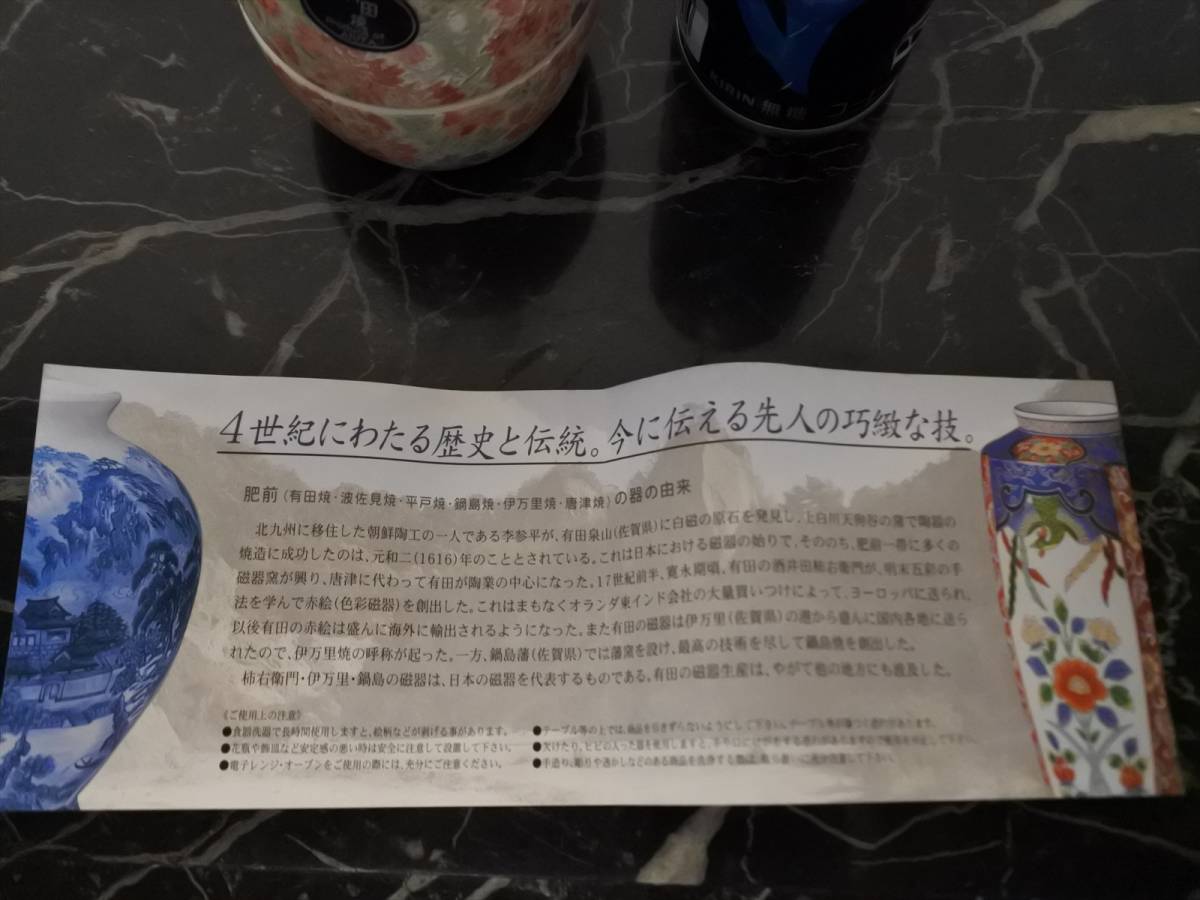 田
焼
KIRIN 無糖 コー
4世紀にわたる歴史と伝統。今に伝える先人の巧緻な技。
肥前(有田焼・波佐見焼・平戸焼・鍋島焼・伊万里焼・唐津焼)の器の由来
北九州に移住した朝鮮陶工の一人である李参平が、有田泉山(佐賀県)に白磁の原石を発見し、上白川天狗谷の窯で陶器の
焼造に成功したのは、元和二(1616)年のこととされている。これは日本における磁器の始りで、そののち、肥前一帯に多くの
磁器窯が興り、唐津に代わって有田が陶業の中心になった。17世紀前半、寛永期頃、有田の酒井田柿右衛門が、明末五彩の手
法を学んで赤絵(色彩磁器)を創出した。これはまもなくオランダ東インド会社の大量買いつけによって、ヨーロッパに送られ、
以後有田の赤絵は盛んに海外に輸出されるようになった。また有田の磁器は伊万里(佐賀県)の港から盛んに国内各地に送ら
れたので、伊万里焼の呼称が起った。一方、鍋島藩(佐賀県)では藩窯を設け、最高の技術を尽して鍋島焼を創出した。
柿右衛門・伊万里・鍋島の磁器は、日本の磁器を代表するものである。有田の磁器生産は、やがて他の地方にも波及した。
《ご使用上の注意》
●食器洗器で長時間使用しますと、絵柄などが剥げる事があります。
●花瓶や飾皿など安定感の悪い時は安全に注意して設置して下さい。
●電子レンジ・オーブンをご使用の際には、充分にご注意ください。
●テーブル等の上では、商品を引きずらないようにして下さい。
●欠けたり、ヒビの入った器を使用しますと、
●手造り、彫りや透かしなどのある商品を洗浄する際は、